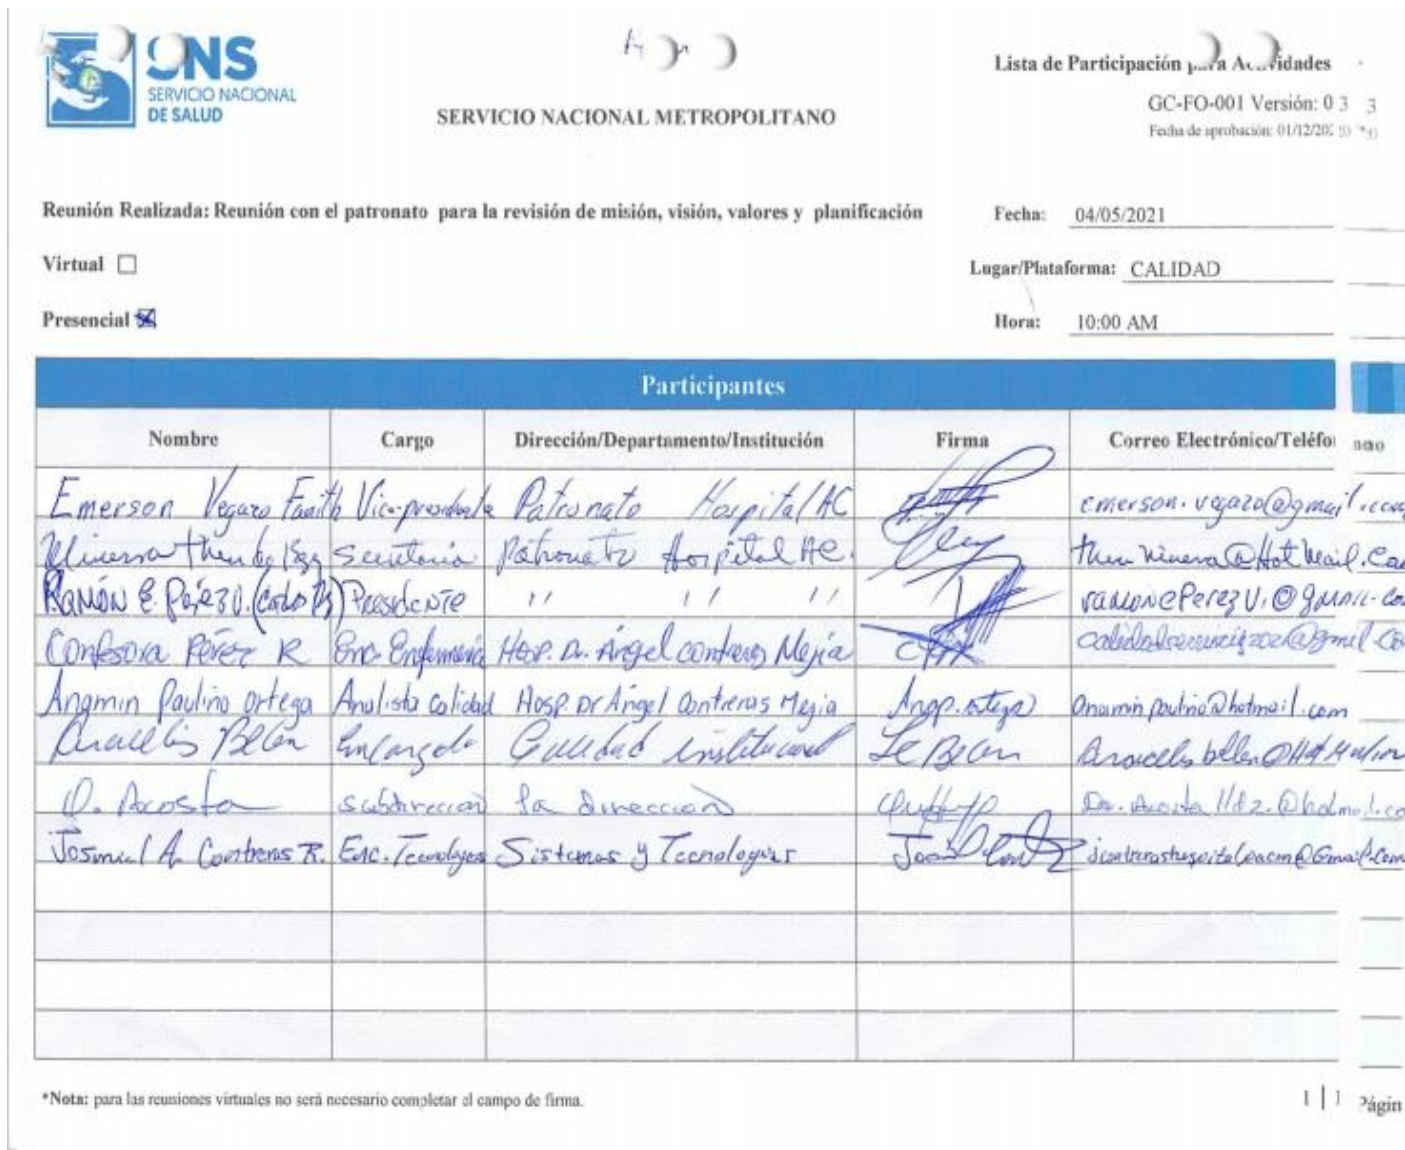 SNS
SERVICIO NACIONAL
DE SALUD
SERVICIO NACIONAL METROPOLITANO
Lista de Participación para Actividades
GC-FO-001 Versión: 03 3
Fecha de aprobación: 01/12/20
Reunión Realizada: Reunión con el patronato para la revisión de misión, visión, valores y planificación
Fecha: 04/05/2021
Virtual
Lugar/Plataforma: CALIDAD
Presencial
Hora: 10:00 AM
Participantes
Nombre Cargo Dirección/Departamento/Institución Firma Correo Electrónico/Teléfo
Emerson Vegazo Vice-presidente Patronato Hospital AC emerson.vegazo@gmail.com
Minerva Then Secretaria Patronato Hospital AC.
Ramón E. Pérez V. Presidente '' '' '' ramonePerezV.@gmail.co
Confesora Pérez R Enc. Enfermería Hosp. Dr. Ángel contreras Mejia
Anamin Paulino Ortega Analista Calidad Hosp Dr Ángel Contreras Mejia Anap.ortega anamin.paulino@hotmail.com
Aracelis Belen Encargada Calidad institucional
Acosta subdirección la dirección
A. Contreras R. Enc. Tecnologia Sistemas y Tecnologias
*Nota: para las reuniones virtuales no será necesario completar el campo de firma.
1 | 1 Págin